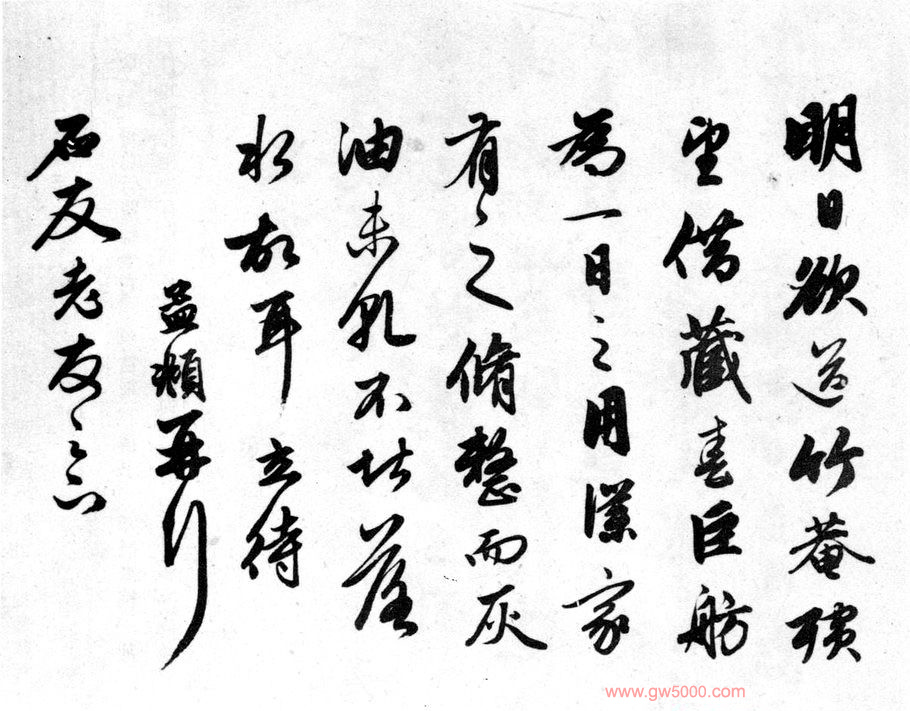 明日欲過竹菴
望借藏春巨舫
為一日之用僕家
有之脩整而灰
油未乾不堪落
水故耳 立待
孟頫再行
石友老友足下
www.gw5000.com